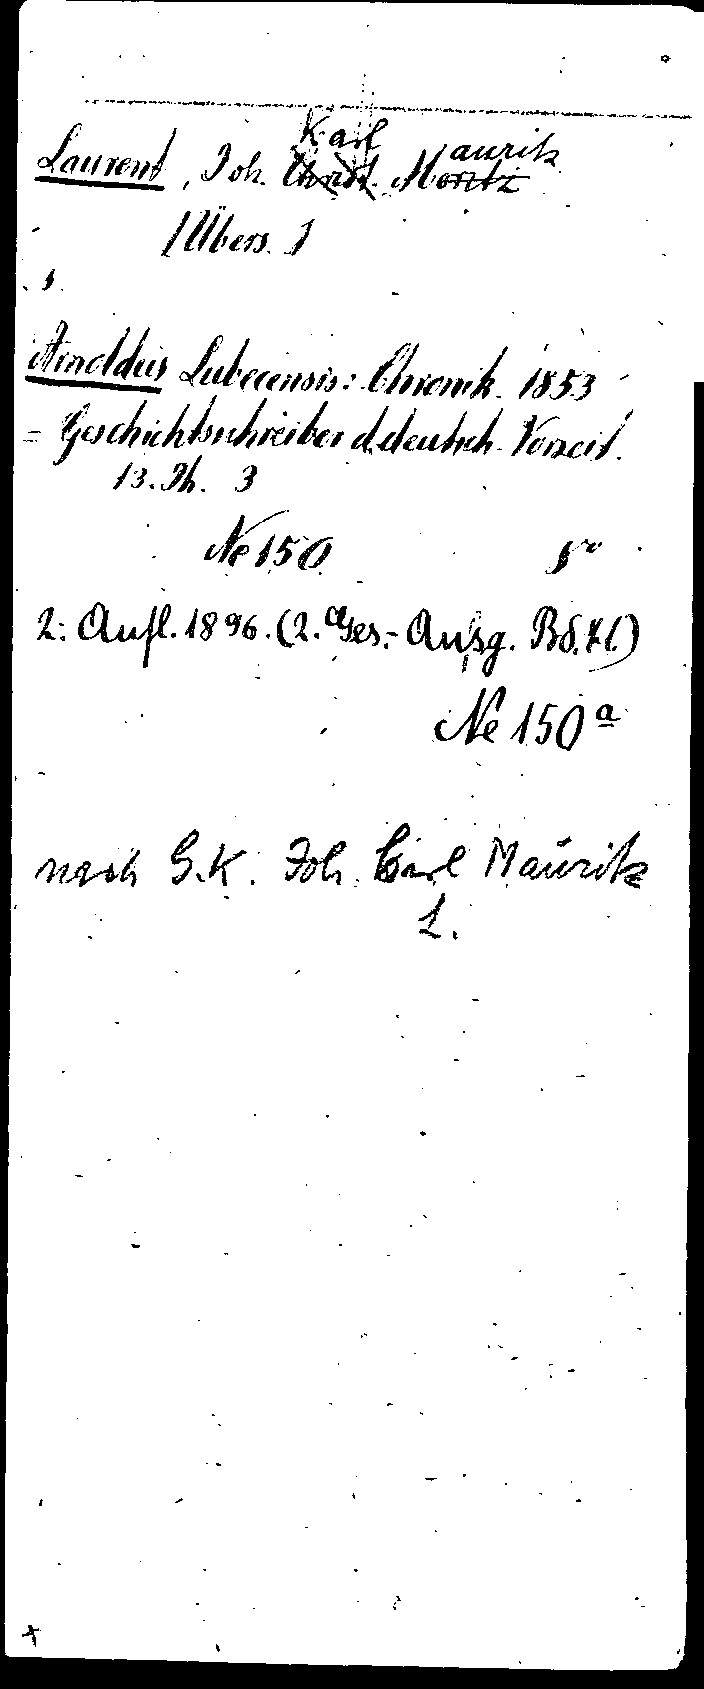 Laurent, Joh. Karl Mauritz
[Übers.]
s.
Arnoldus Lubecensis: Chronik. 1853
= Geschichtschreiber d. deutsch. Vorzeit.
13. Jh. 3
Ne 150 8°
2. Aufl. 1896. (2. Ges.-Ausg. Bd. 71)
Ne 150 a
nach G.K. Joh. Carl Mauritz
L.